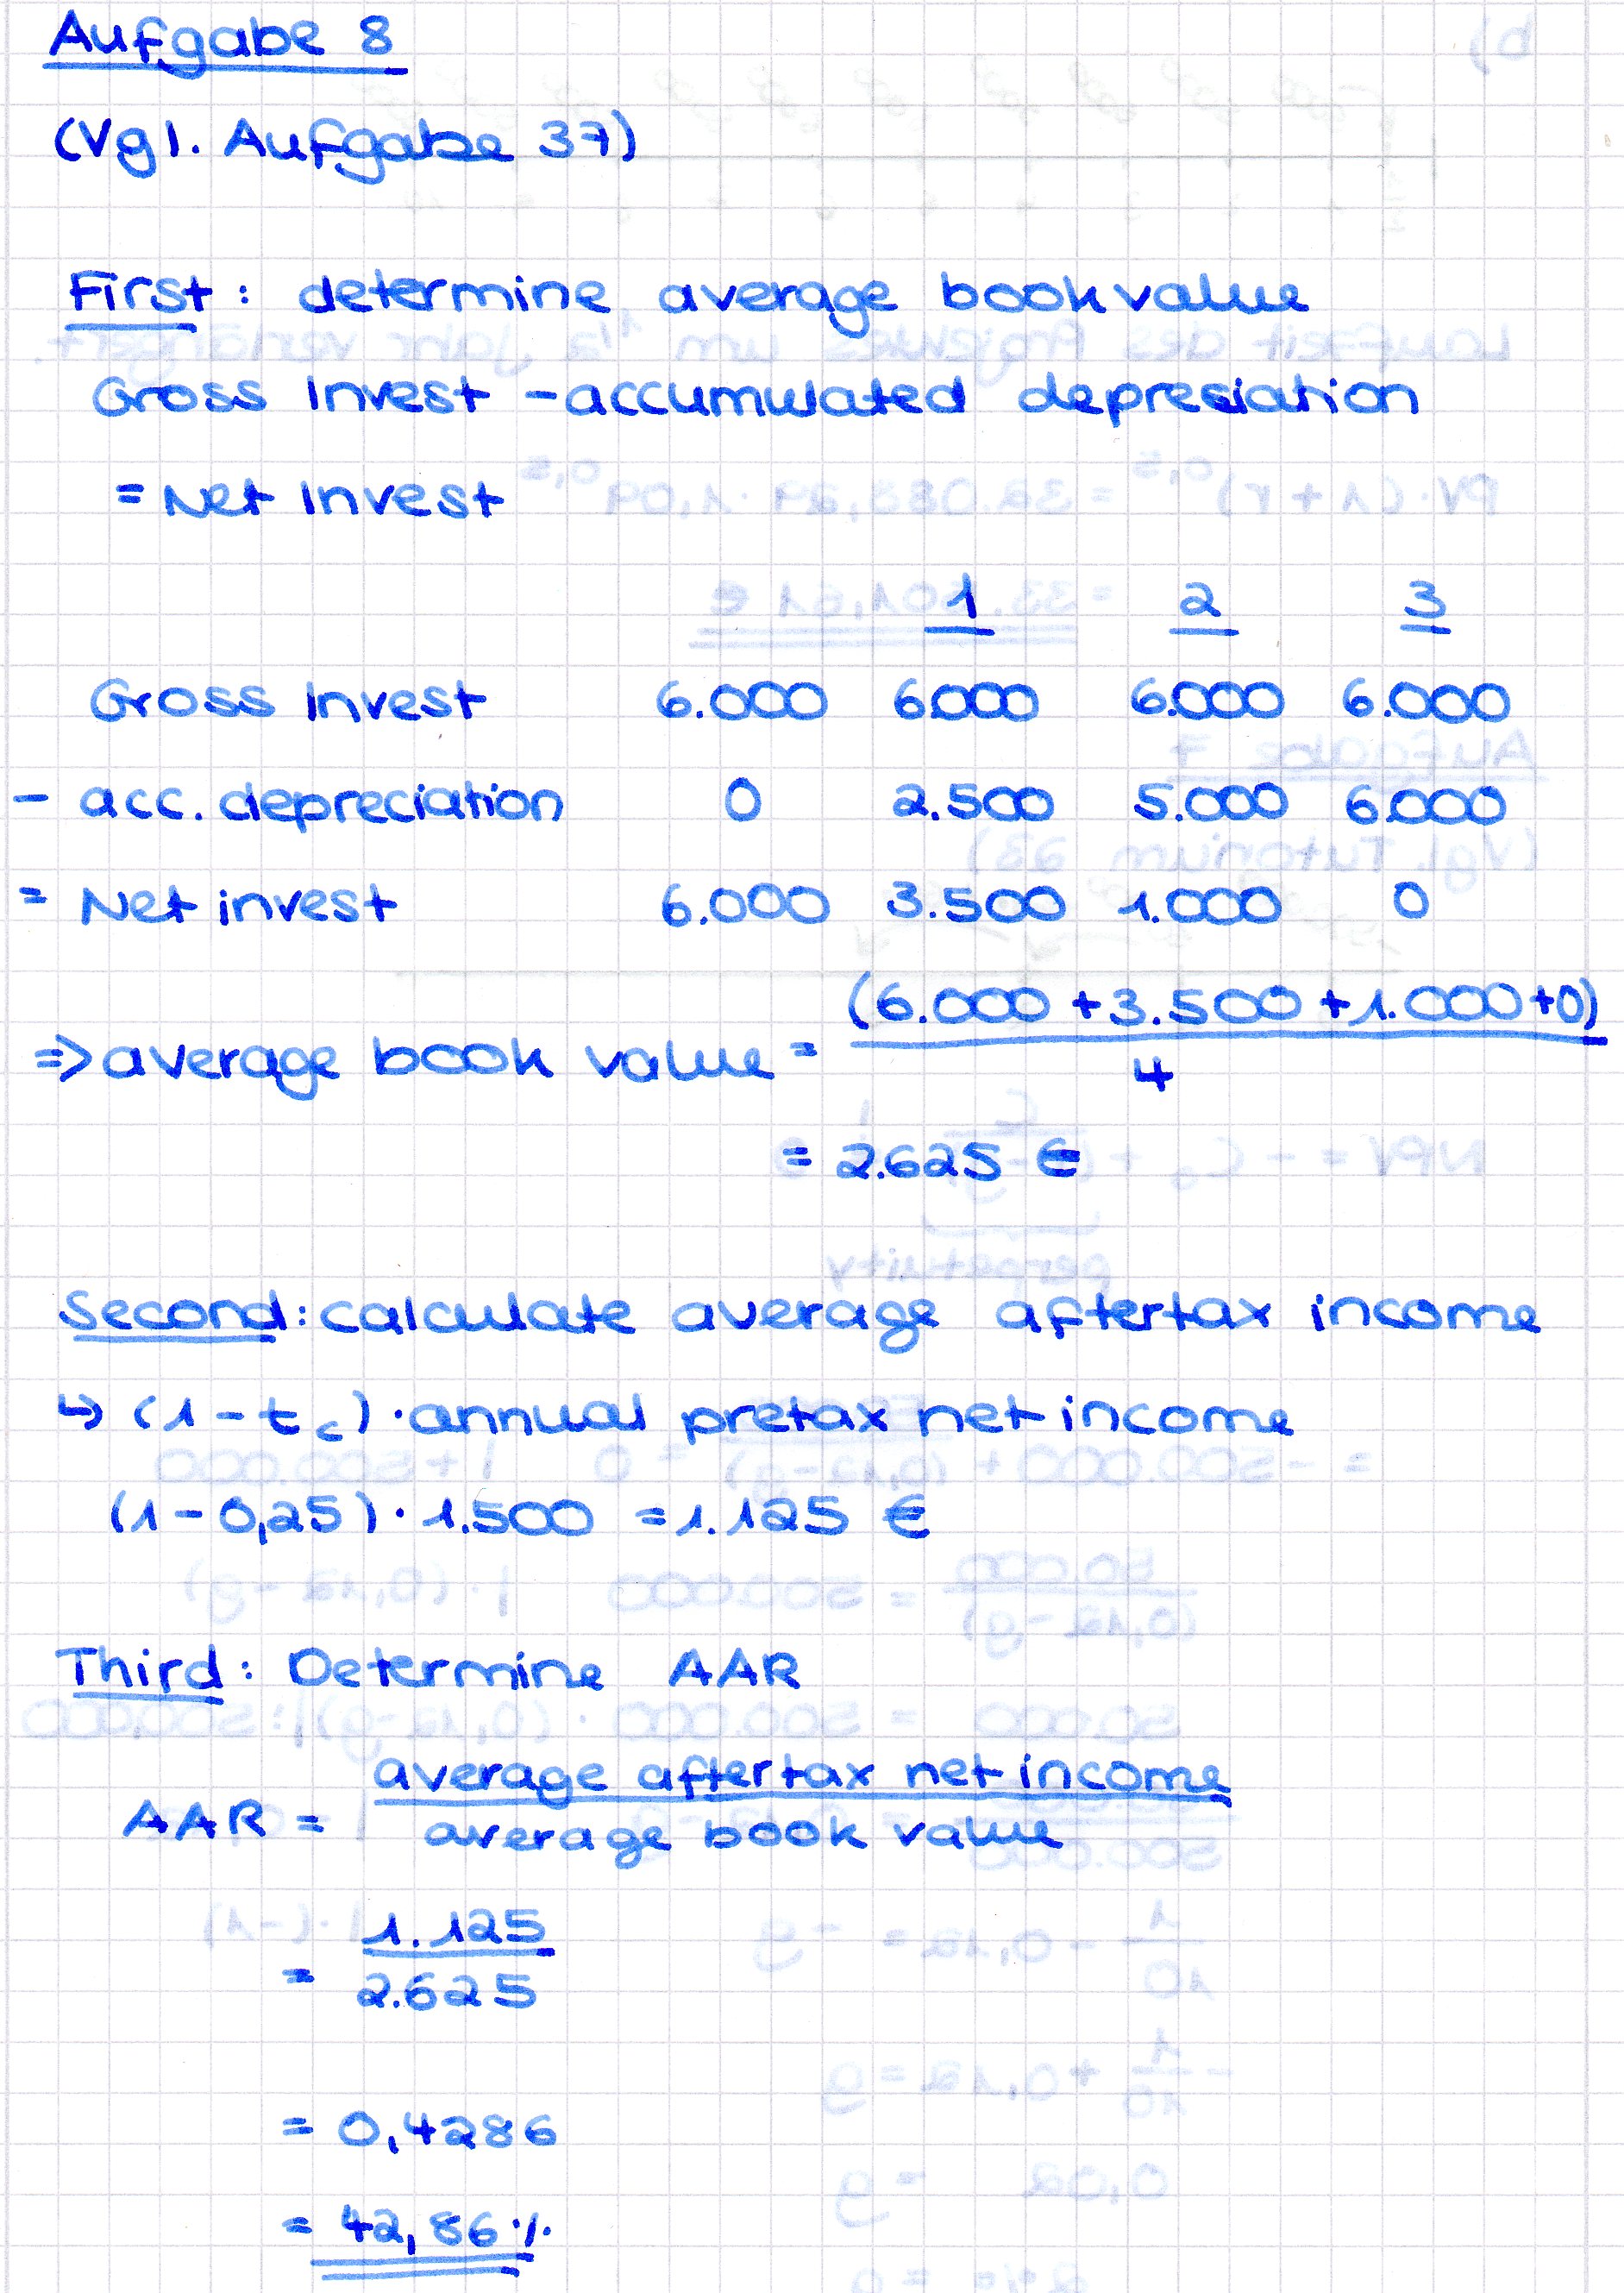 Aufgabe 8
(Vgl. Aufgabe 37)
First: determine average bookvalue
Gross Invest - accumulated depresiation
= Net Invest
1 2 3
Gross Invest 6.000 6000 6.000 6.000
- acc. depreciation 0 2.500 5.000 6.000
= Net invest 6.000 3.500 1.000 0
=> average book value = (6.000 + 3.500 + 1.000 + 0) / 4
= 2.625 €
Second: calculate average aftertax income
↳ (1 - tc) · annual pretax net income
(1 - 0,25) · 1.500 = 1.125 €
Third: Determine AAR
AAR = average aftertax net income / average book value
= 1.125 / 2.625
= 0,4286
= 42,86 %